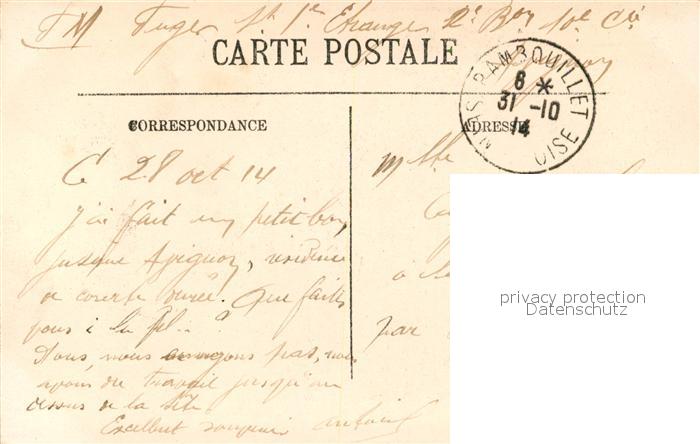 FM Fuger St 1er Etranger 2e Bon 10e Cie
Avignon
CARTE POSTALE
RAMBOUILLET
6 *
31 -10
14
OISE
CORRESPONDANCE
ADRESSE
Ce 28 oct 14
j'ai fait un petit bon
jusque Avignon, résidence
de courte durée. Que faites
vous à la
Nous nous pas, nous
avons du travail jusqu'au
dessus de la tête.
Excellent souvenir
Mlle
à
par
privacy protection
Datenschutz